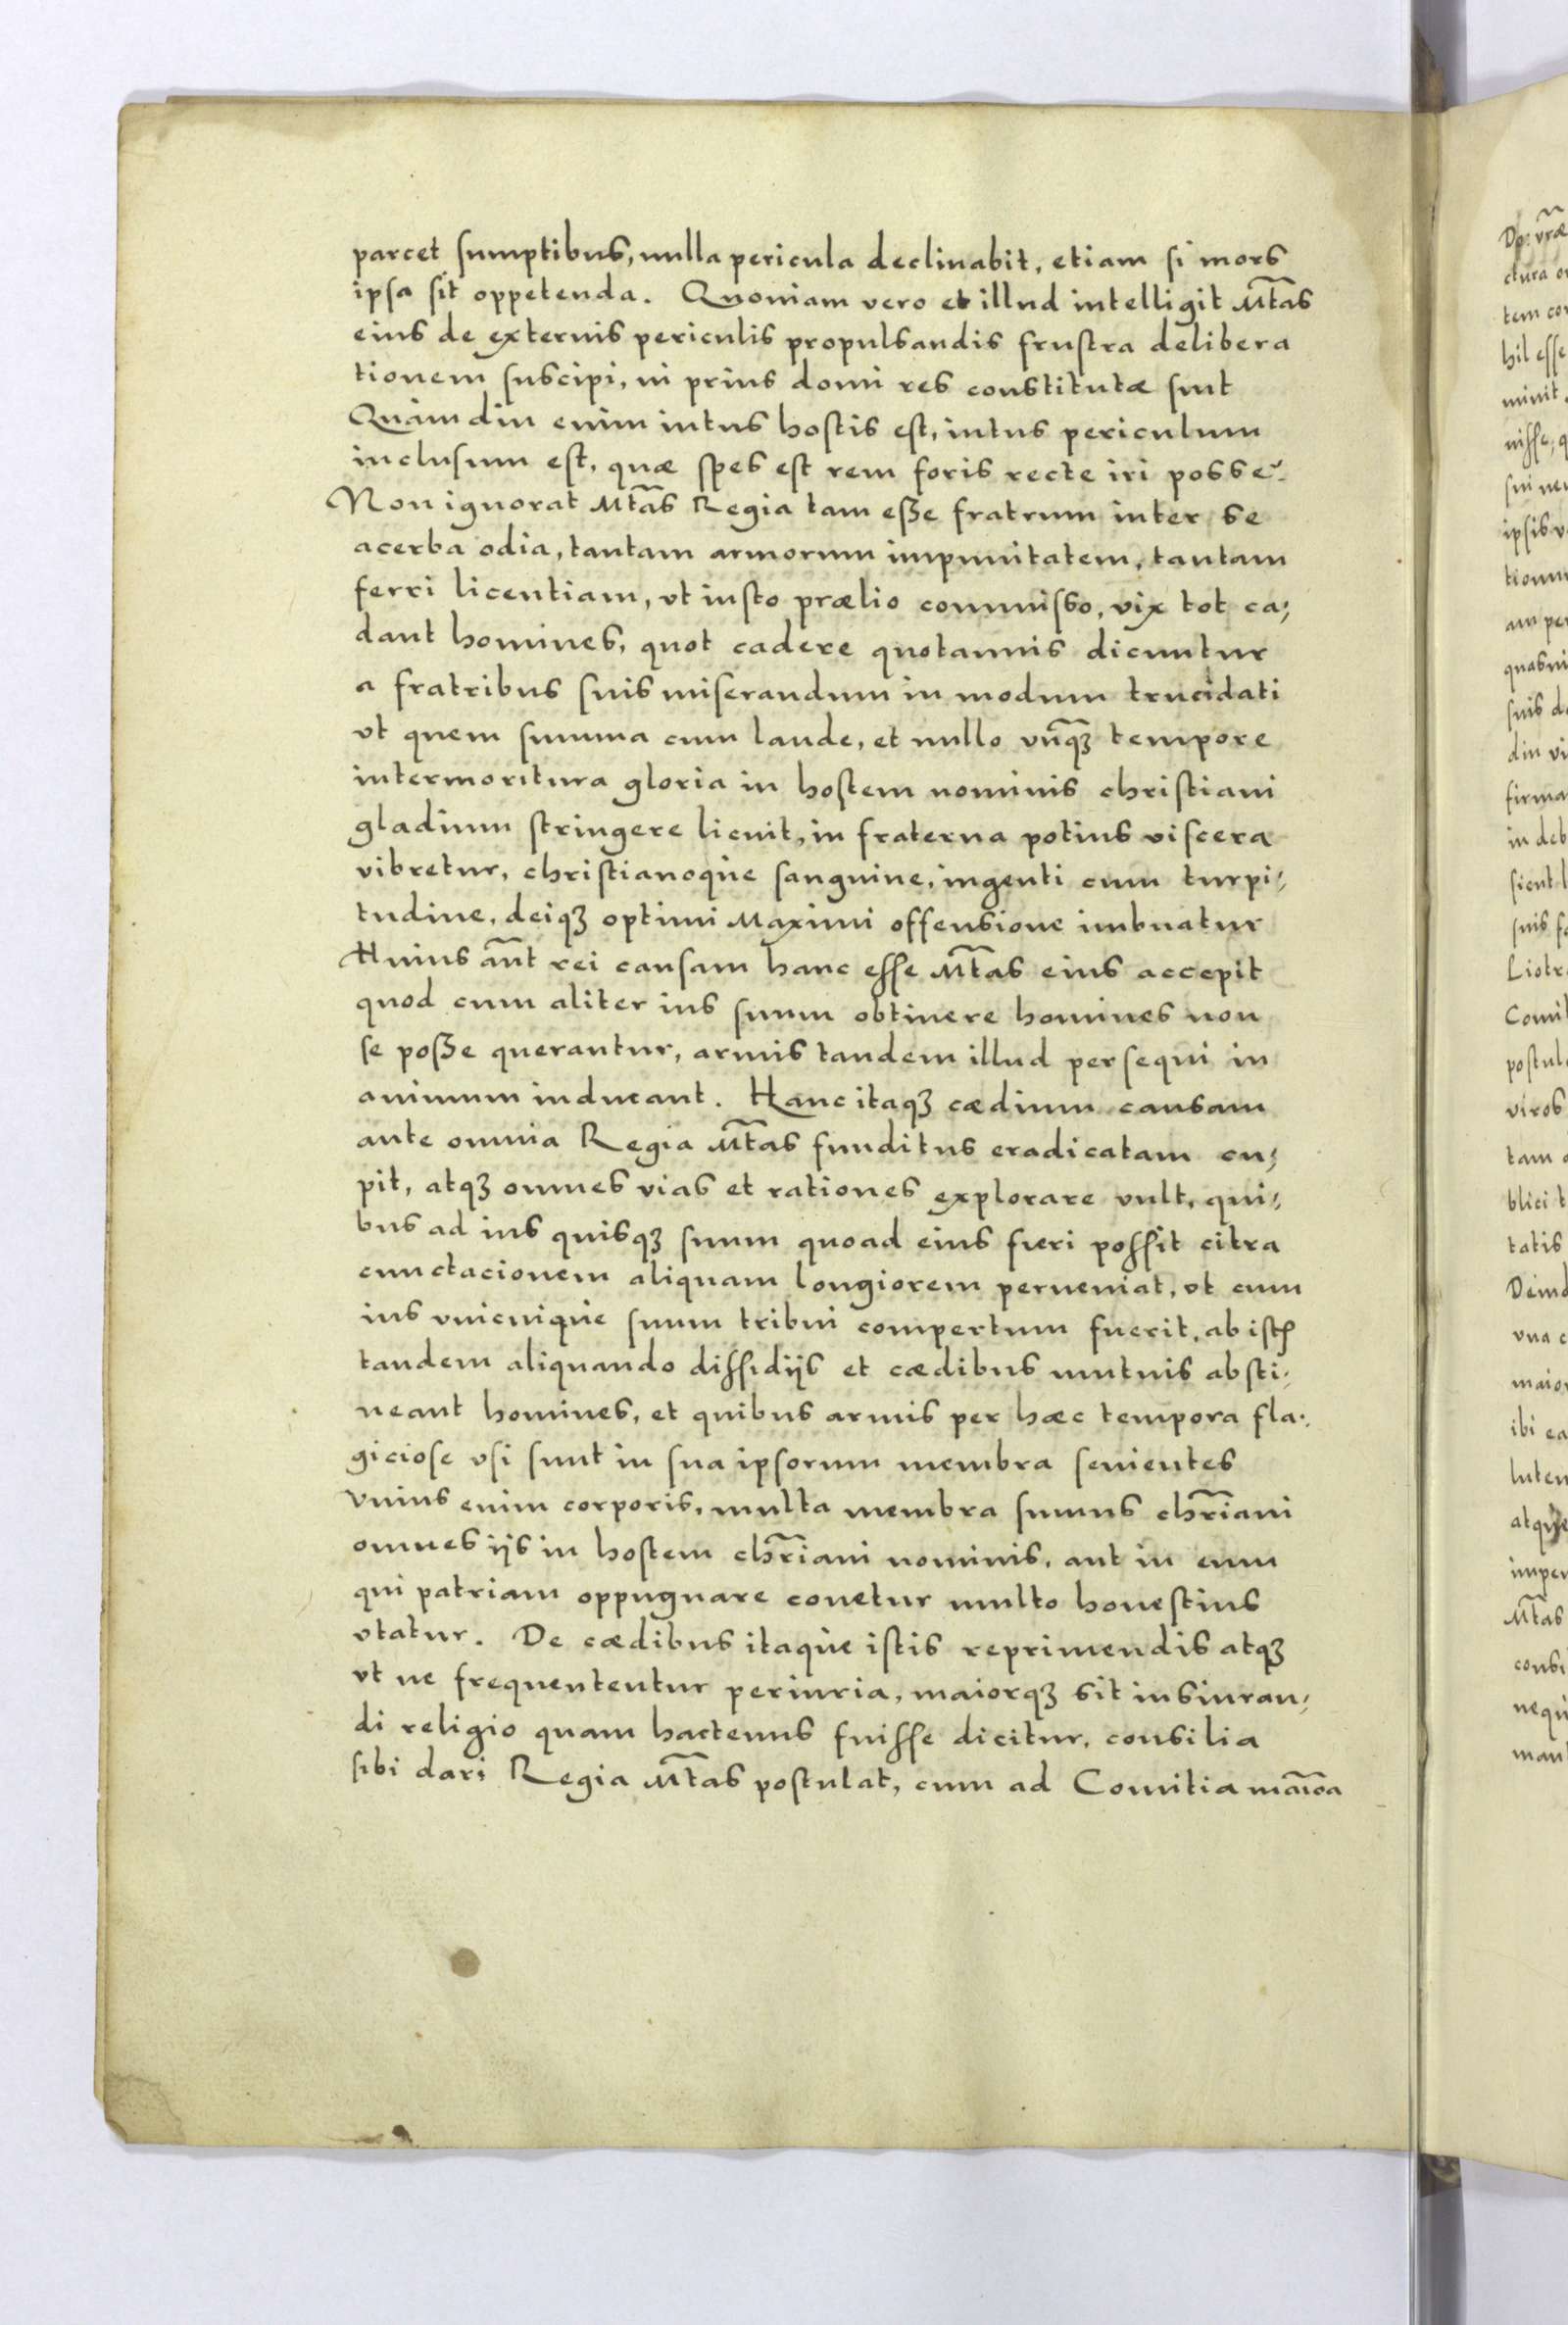 parcet sumptibus, nulla pericula declinabit, etiam si mors
ipsa sit oppetenda. Quoniam vero et illud intelligit Mt̃as
eius de externis periculis propulsandis frustra delibera
tionem suscipi, ni prius domi res constitutæ sint
Quàm diu enim intus hostis est, intus periculum
inclusum est, quæ spes est rem foris recte iri posse?
Non ignorat Mt̃as Regia tam eße fratrum inter se
acerba odia, tantam armorum impunitatem, tantam
ferri licentiam, vt iusto prælio commisso, vix tot ca,
dant homines, quot cadere quotannis dicuntur
a fratribus suis miserandum in modum trucidati
vt quem summa cum laude, et nullo vnq̃ꝫ tempore
intermoritura gloria in hostem nominis christiani
gladium stringere licuit, in fraterna potius viscera
vibretur, christianoque sanguine, ingenti cum turpi,
tudine, deiqꝫ optimi Maximi offensione imbuatur
Huius aũt rei causam hanc esse Mt̃as eius accepit
quod cum aliter ius suum obtinere homines non
se poße querantur, armis tandem illud persequi in
animum inducant. Hanc itaqꝫ cædium causam
ante omnia Regia Mt̃as funditus eradicatam cu,
pit, atqꝫ omnes vias et rationes explorare vult, qui,
bus ad ius quisqꝫ suum quoad eius fieri possit citra
cunctacionem aliquam longiorem perueniat, vt cum
ius vnicuique suum tribui compertum fuerit, ab istꝭ
tandem aliquando dissidijs et cædibus mutuis absti,
neant homines, et quibus armis per hæc tempora fla,
giciose vsi sunt in sua ipsorum membra seuientes
vnius enim corporis, multa membra sumus chr̃iani
omnes ijs in hostem chr̃iani nominis, aut in eum
qui patriam oppugnare conetur multo honestius
vtatur. De cædibus itaque istis reprimendis atqꝫ
vt ne frequententur periuria, maiorqꝫ sit iusiuran,
di religio quam hactenus fuisse dicitur, consilia
sibi dari Regia Mt̃as postulat, cum ad Comitia